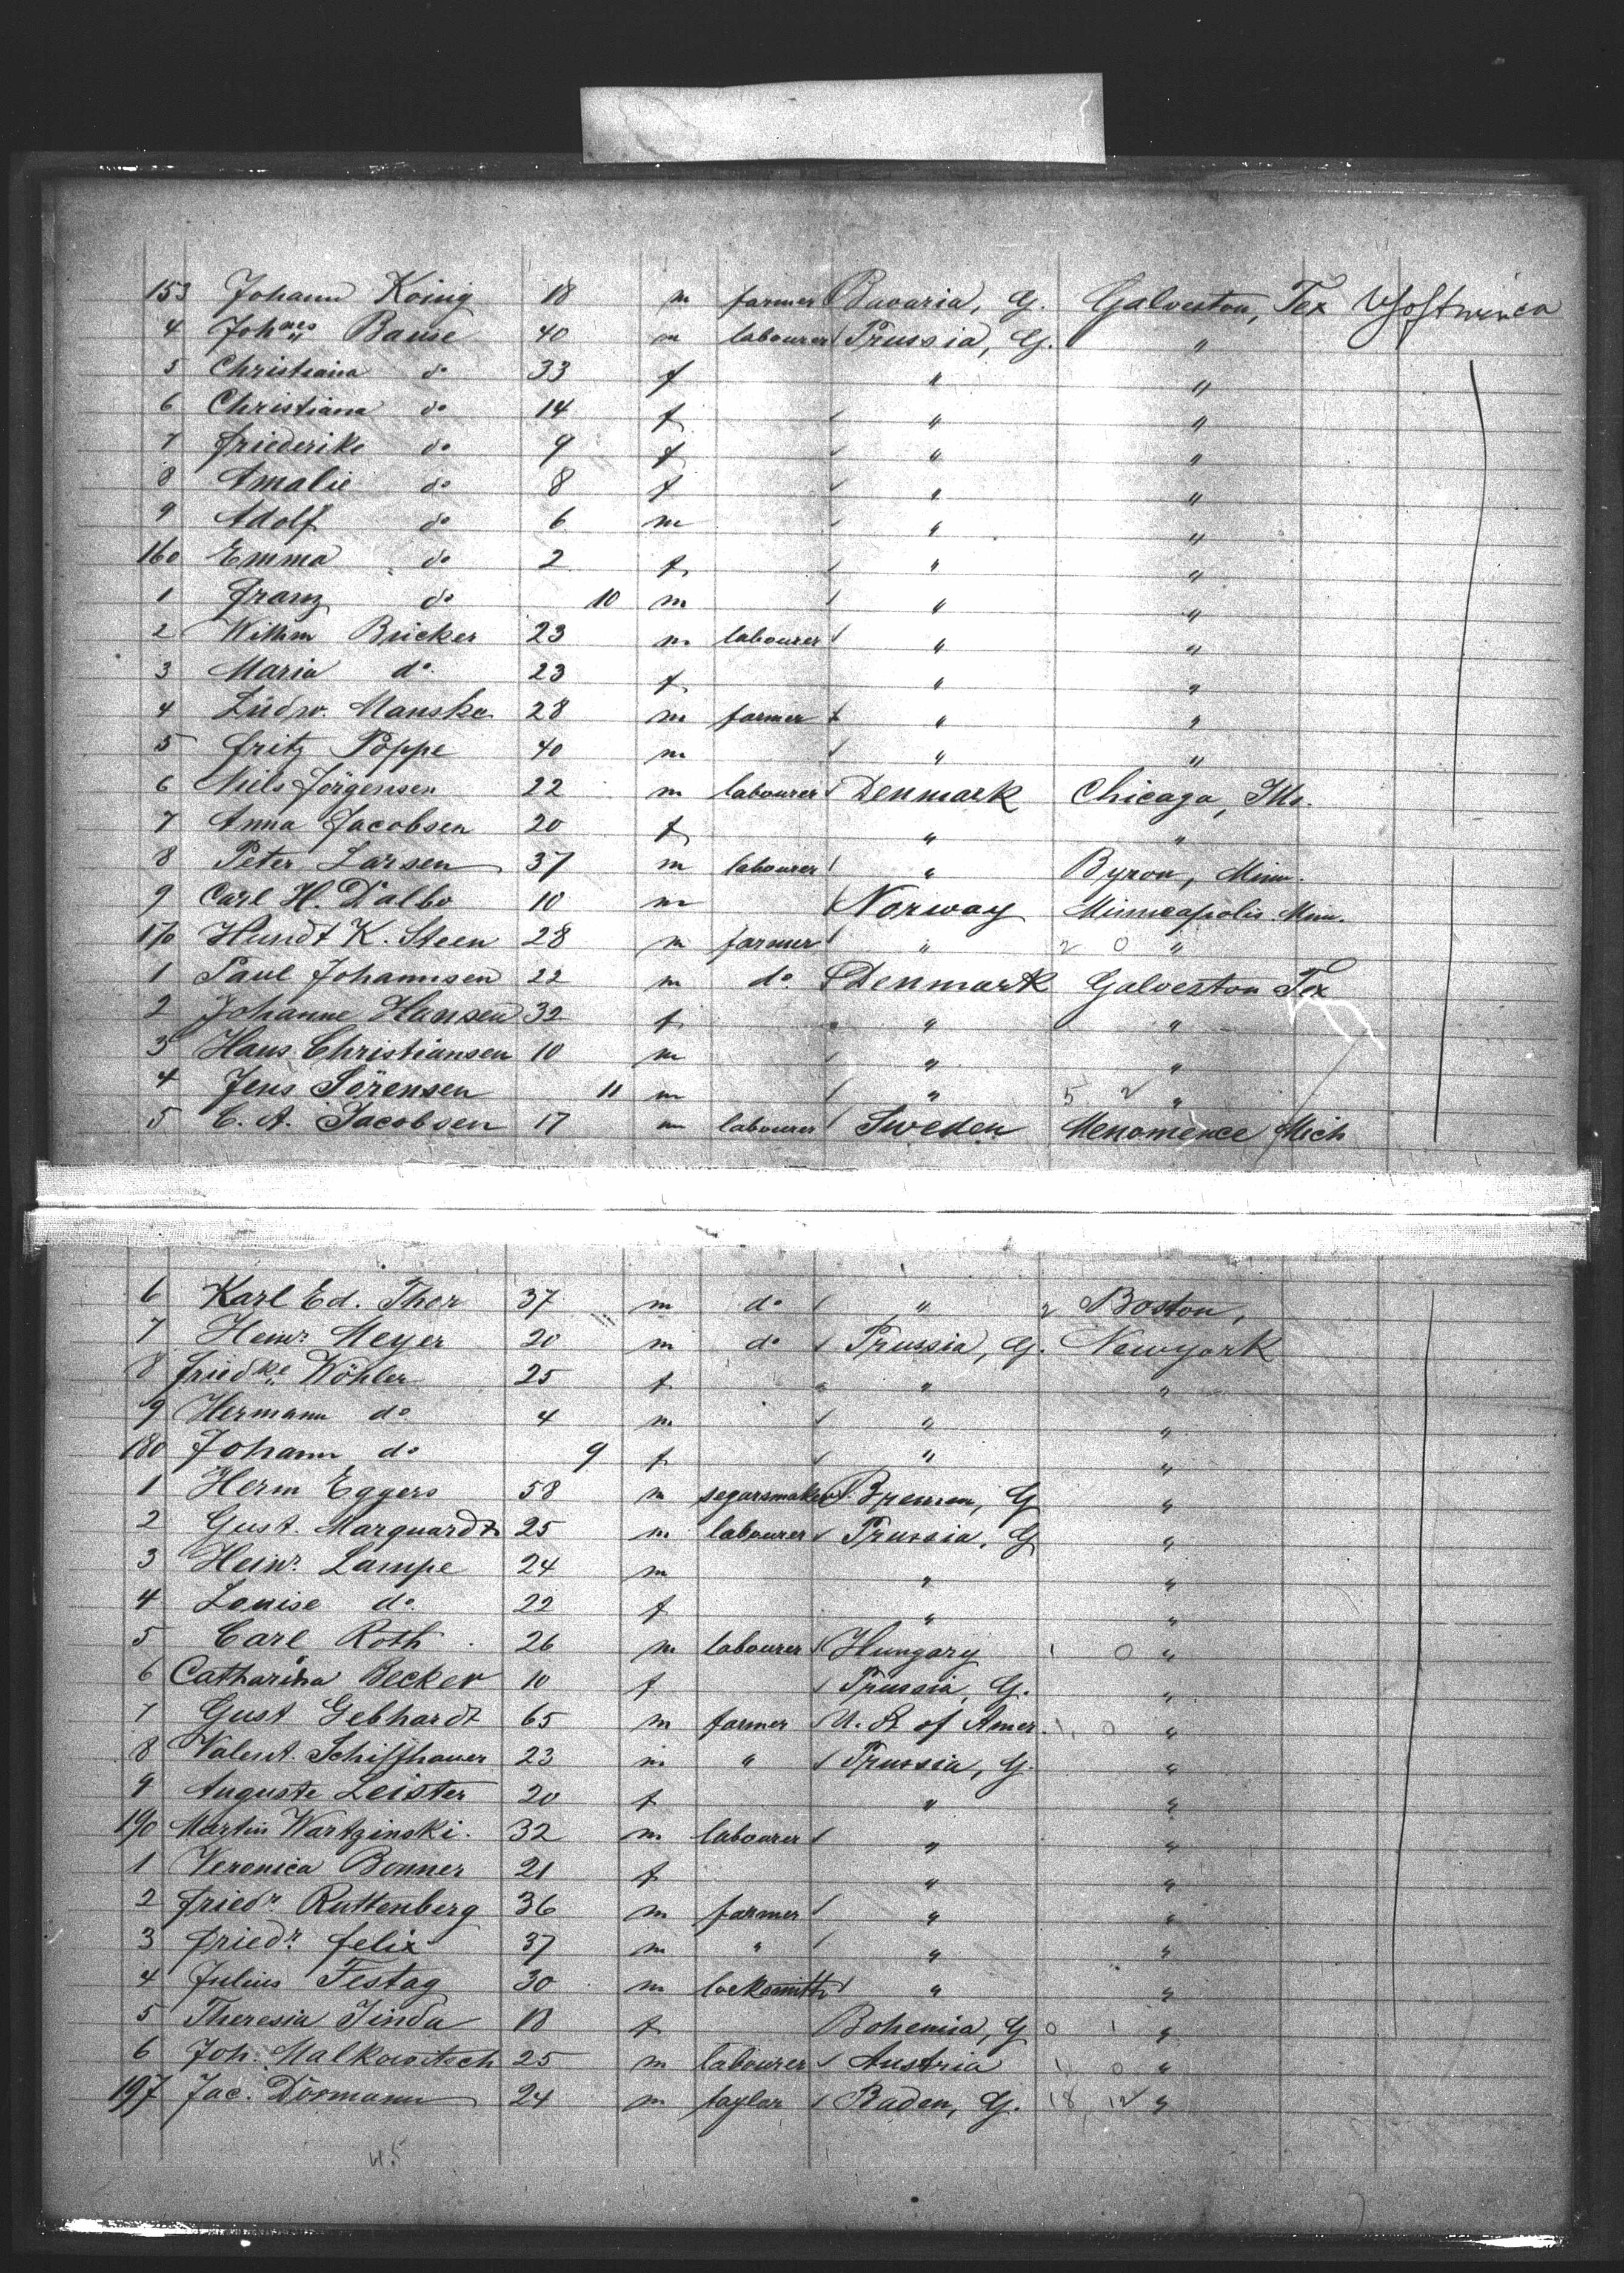 153 Johann König 18 m farmer Bavaria, G. Galveston, Tex
4 Johnes Bause 40 m labourer Prussia, G. "
5 Christiana do 33 f " "
6 Christiana do 14 f " "
7 Friederike do 9 f " "
8 Amalie do 8 f " "
9 Adolf do 6 m " "
160 Emma do 2 f " "
1 Franz do 10 m " "
2 Wilhm Bücker 23 m labourer " "
3 Maria do. 23 f " "
4 Ludw. Manske 28 m farmer " "
5 Fritz Poppe 40 m " "
6 Niels Jörgensen 22 m labourer Denmark Chicago, Ills.
7 Anna Jacobsen 20 f " "
8 Peter Larsen 37 m labourer " Byron, Minn.
9 Carl H. Dalbo 10 m Norway Minneapolis Minn.
170 K. Steen 28 m farmer " 2 0 "
1 Paul Johannsen 22 m do. Denmark Galveston Tex
2 Johanne Hansen 32 f " "
3 Hans Christiansen 10 m " "
4 Jens Sörensen 11 m " 5 2 "
5 C. A. Jacobsen 17 m labourer Sweden Menomence Mich
6 Karl Ed. Thor 37 m do " 2 Boston,
7 Heinr Meyer 20 m do Prussia, G. Newyork
8 Friedke Wöhler 25 f " "
9 Hermann do 4 m " "
180 Johann do 9 f " "
1 Herm Eggers 58 m segarsmaker Bremen, G "
2 Gust. Marquardt 25 m labourer Prussia, G "
3 Heinr. Lampe 24 m " "
4 Louise do. 22 f " "
5 Carl Roth 26 m labourer Hungary 1 0 "
6 Catharina Becker 10 f Prussia, G. "
7 Gust Gebhardt 65 m farmer U. S. of Amer. 1, 0 "
8 Valent. Schiffhauer 23 m " Prussia, G. "
9 Auguste Leister 20 f " "
190 Martin Wartzinski. 32 m labourer " "
1 Veronica Bonner 21 f " "
2 Friedr Ruttenberg 36 m farmer " "
3 Friedr. Felix 37 m " " "
4 Julius Festag 30 m locksmith " "
5 Theresia Jinda 18 f Bohemia, G 0 1 "
6 Joh. Malkowitsch 25 m labourer Austria 1 0 "
197 Jac. Dörmann 24 m taylor Baden, G. 18 12 "
45